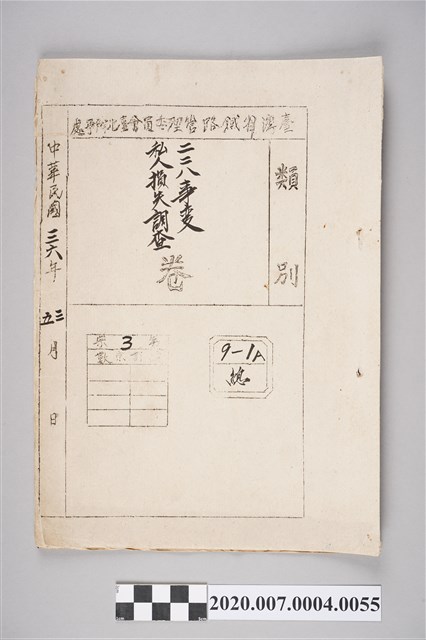 臺灣省鐵路管理委員會臺北辦事處
類別
二二八事變
私人損失調查
卷
中華民國三六年
三五月 日
第 3 號
9-1A
總
2020.007.0004.0055